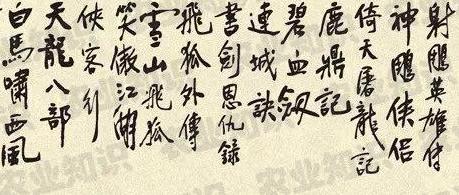 射鵰英雄传
神鵰侠侣
倚天屠龍記
鹿鼎記
碧血劔
連城訣
書劍恩仇錄
飛狐外傳
雪山飛狐
笑傲江湖
俠客行
天龍八部
白馬嘯西風
农业知识